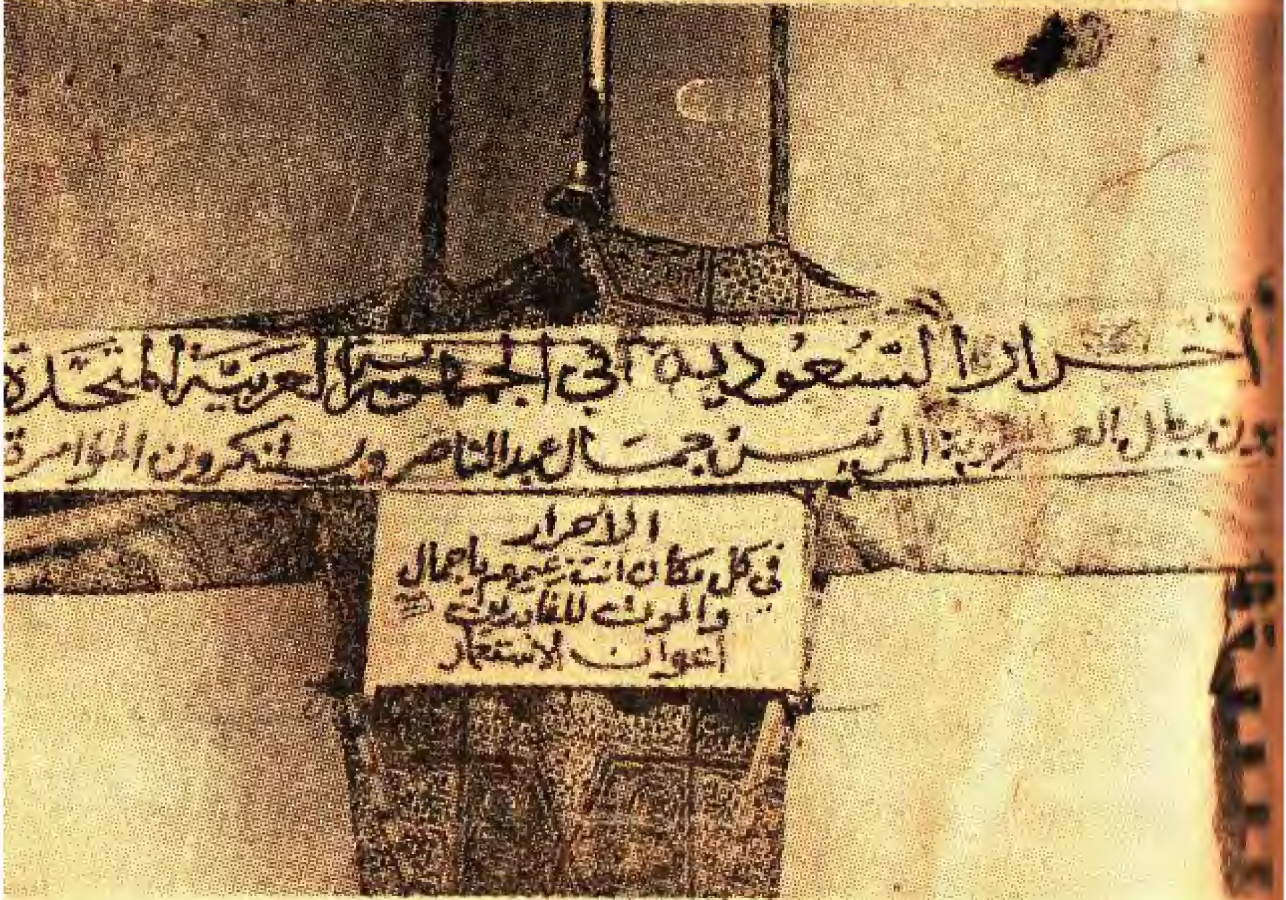 احرار السعودية في الجمهورية العربية المتحدة
ببطل العروبة الرئيس جمال عبدالناصر ويستنكرون المؤامرة
الأحرار
في كل مكان انت زعيمهم ياجمال
والموت للغادرين
أعوان الاستعمار